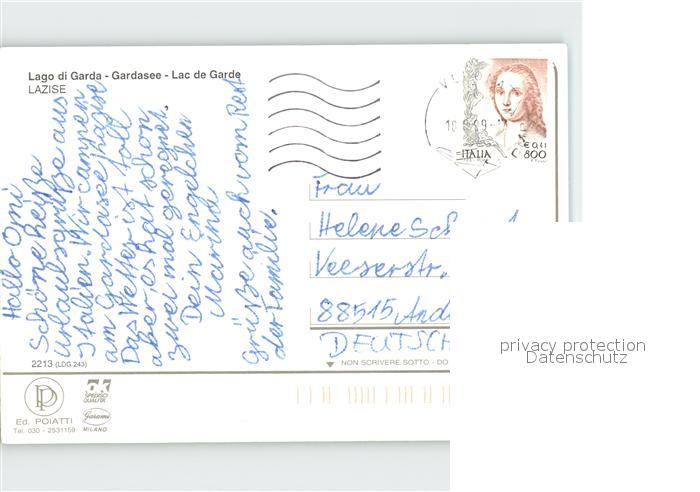 Lago di Garda - Gardasee - Lac de Garde
LAZISE
Hallo Omi
Schöne heiße
Urlaubsgrüße aus
Italien. Wir campen
am Gardasee/Lazise
Das Wetter ist toll
aber es hat schon
zwei mal geregnet.
Dein Engelchen
Marina
Grüße auch vom Rest
der Familie.
ITALIA
€ 0,41
£ 800
Frau
Helene
Veeserstr.
88515 And
DEUTSCH
2213 (LDG 243)
NON SCRIVERE SOTTO - DO
Ed. POIATTI
Tel. 030 - 2531159
OK
SPEDISCI
QUALITÀ
Garami
MILANO
privacy protection
Datenschutz